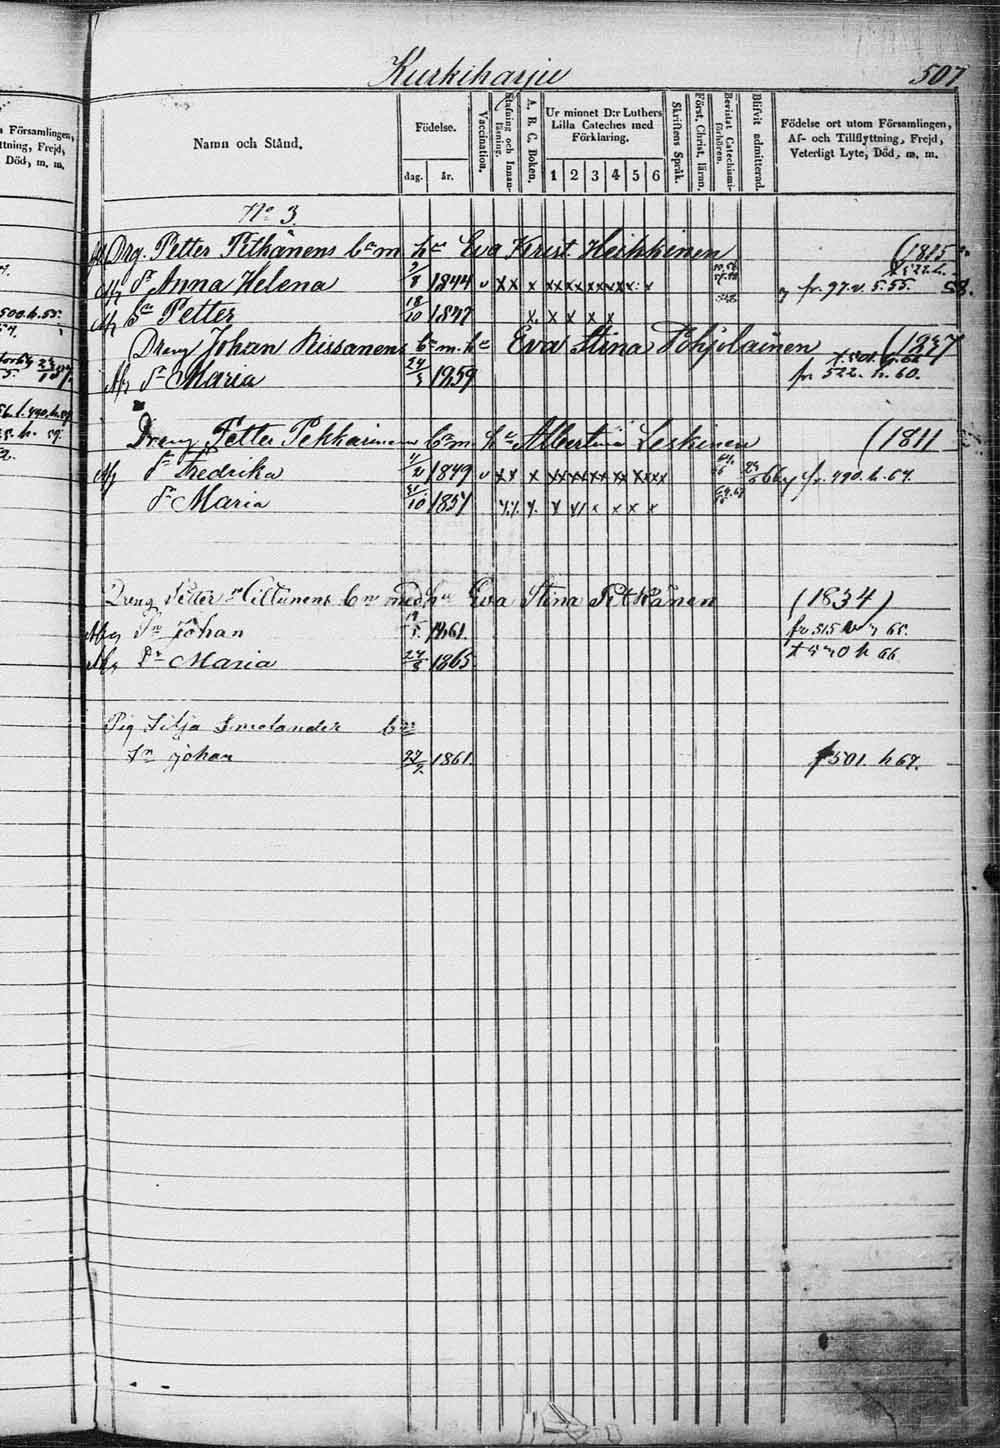 Kurkiharju 507
Namn och Stånd.
Födelse.
dag. år.
Vaccination.
Stafning och Innan-läsning.
A. B. C. Boken.
Ur minnet D:r Luthers
Lilla Cateches med
Förklaring.
1 2 3 4 5 6
Skriftens Språk.
Först. Christ. läran.
Bevistat Catechismi-förhören.
Blifvit admitterad.
Födelse ort utom Församlingen,
Af- och Tillflyttning, Frejd,
Veterligt Lyte, Död, m. m.
No 3
Drg. Petter Pitkänens bn m hu Eva Krist. Heikkinen (1815
Dr Anna Helena 1844 v x x x x x x x x x x x x x fr. 97. v. 5. 55. 58.
Sn Petter 18/10 1847 x x x x x
Dreng Johan Nissanens bn m. hu Eva Stina Pohjolainen (1237
Dr Maria 24/3 1859 fr. 522. h. 60.
Dreng Petter Pekkarinens bn m. hu Albertina Leskinen (1811
Dr Fredrika 1849 v x x x x x x x x x x x x x x fr. 490. h. 67.
Dr Maria 31/10 1857 x x x x x x x x x
Dreng Petter Miettinens bn med hu Eva Stina Pitkänen (1834)
Sn Johan 1861. fr 515 66.
Dr Maria 24/8 1865 h 66
Pig Silja Smolander bn
Sn Johan 1861. 501. h 67.
Församlingen,
Frejd,
Död, m. m.
500. h. 55.